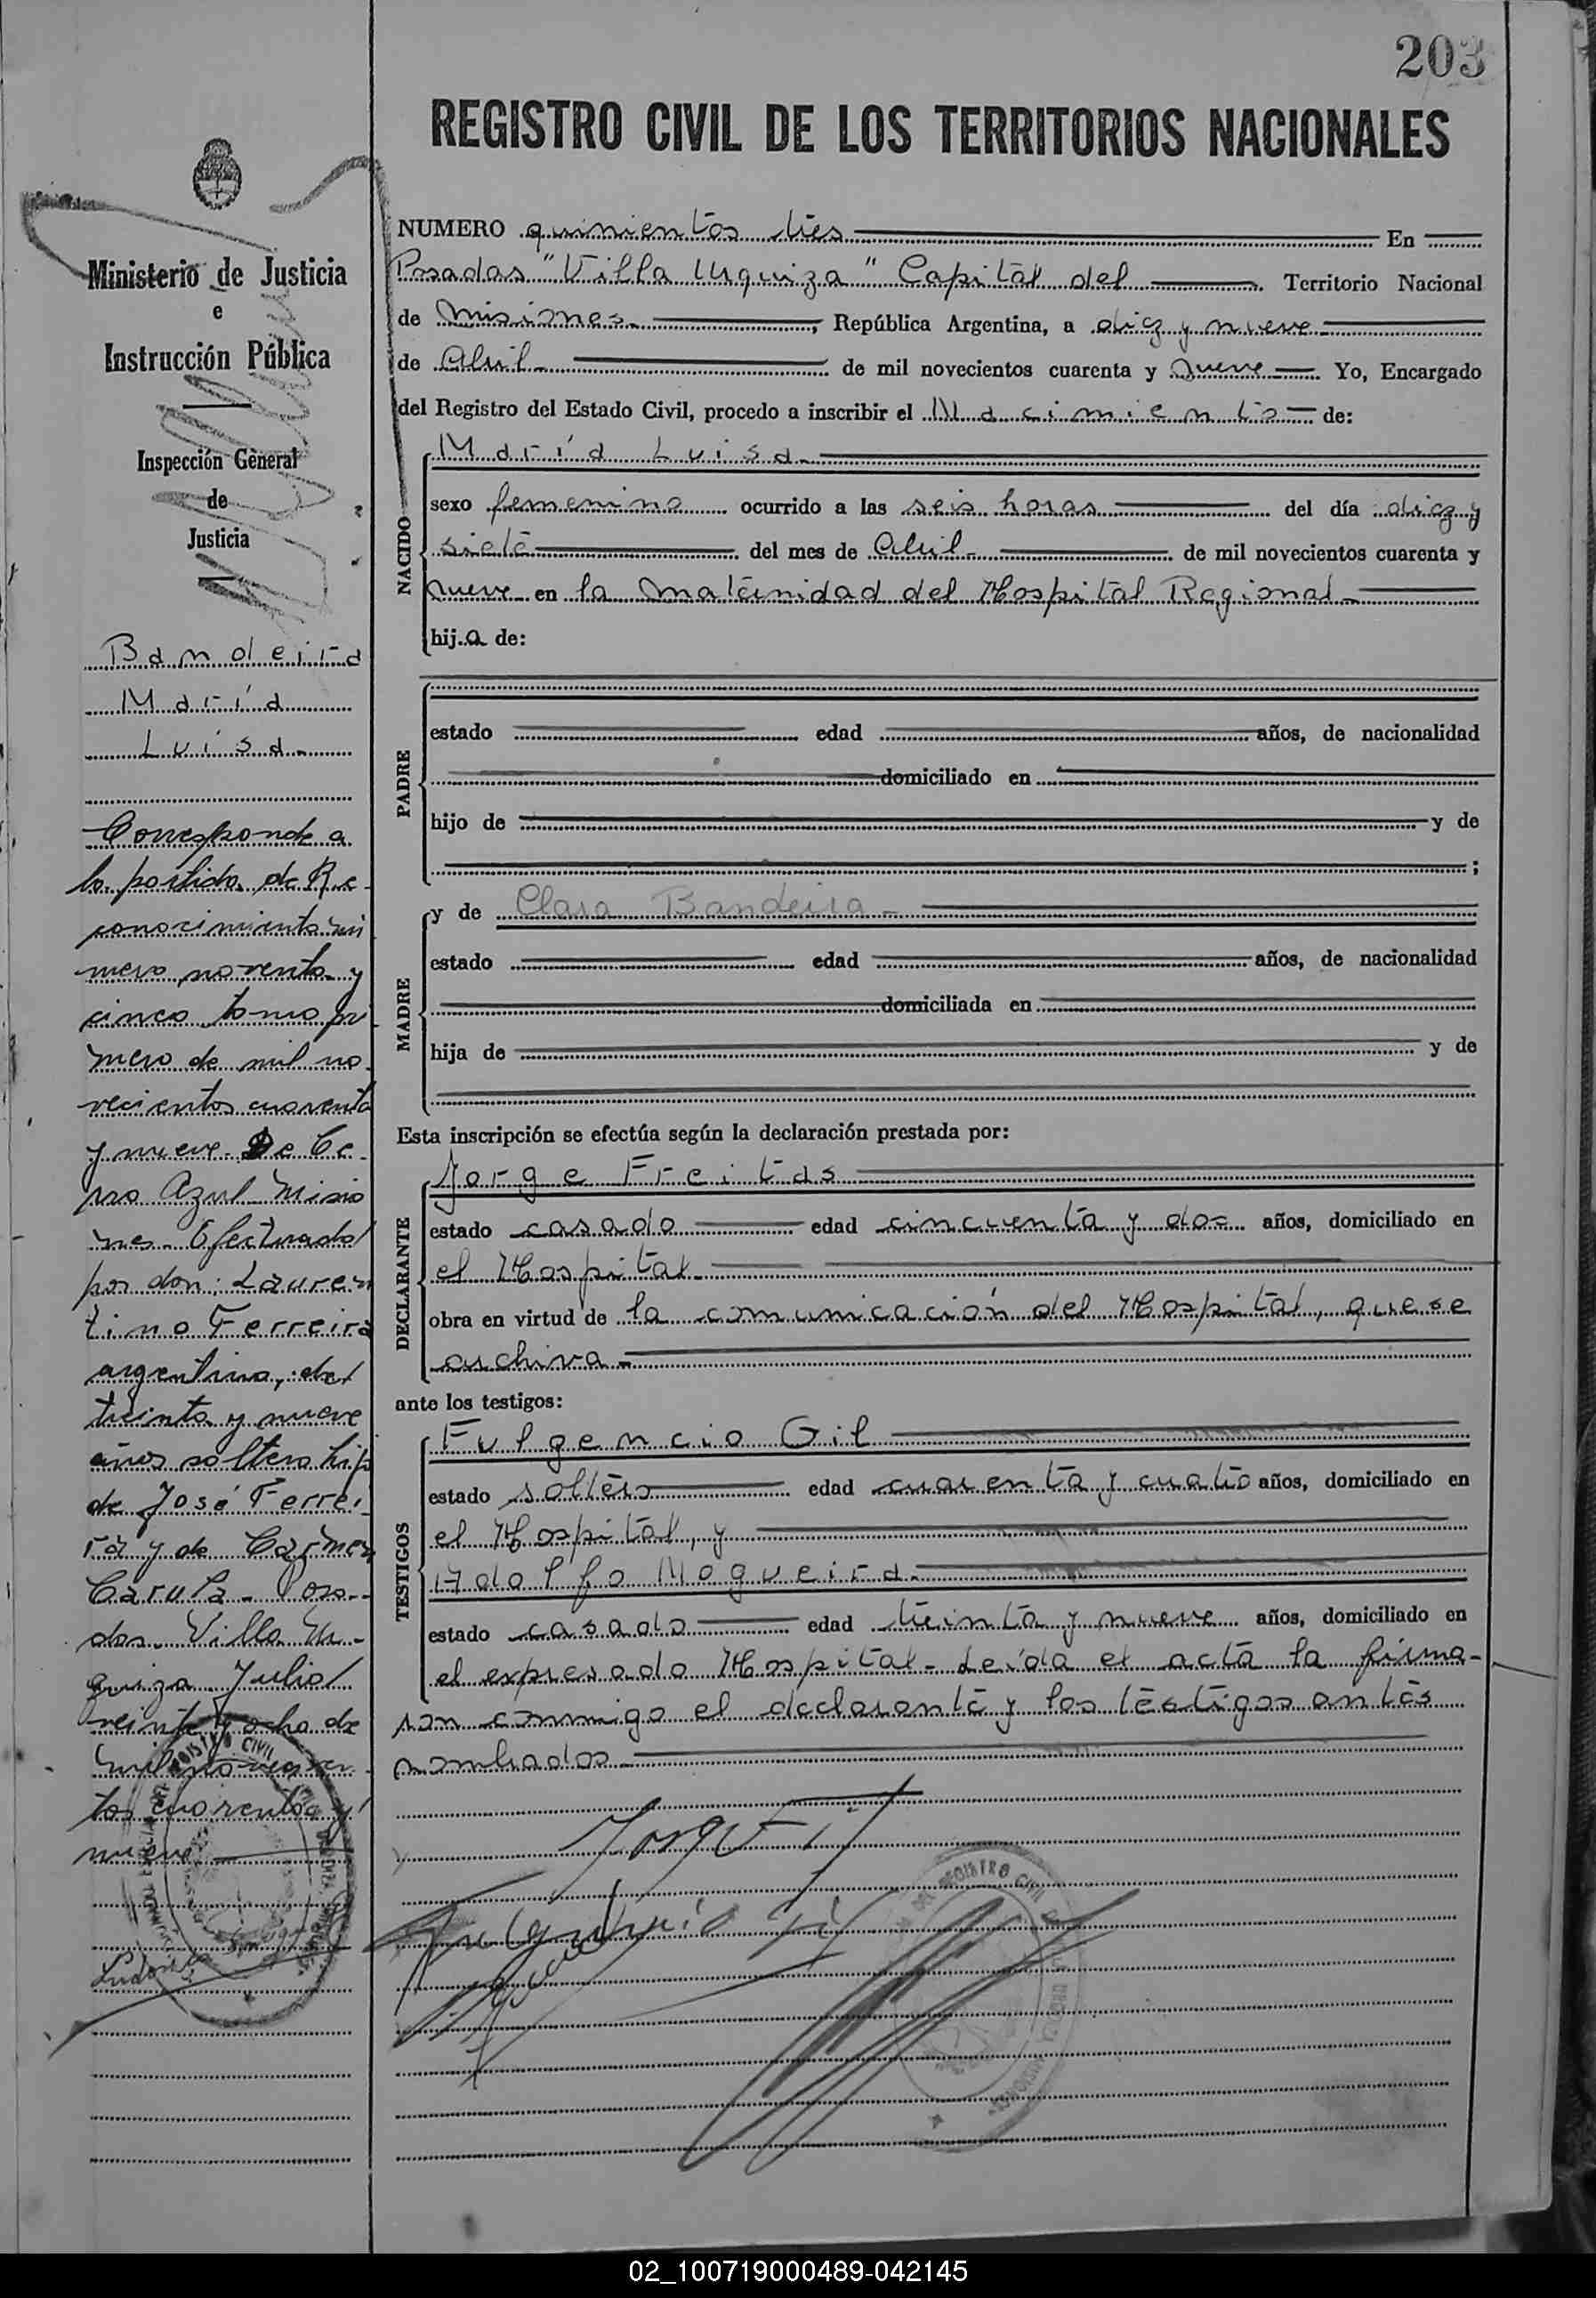 203
REGISTRO CIVIL DE LOS TERRITORIOS NACIONALES
Ministerio de Justicia
e
Instrucción Pública
Inspección General
de
Justicia
Bandeira
María
Luisa.
Corresponde a
la partida de Re-
conocimiento nú
mero noventa y
cinco tomo pri
mero de mil no-
vecientos cuarenta
y nueve. De Ce-
rro Azul Misio
nes. Efectuado
por don: Lauren
tino Ferreira
argentino, de
treinta y nueve
años soltero hijo
de José Ferrei
ra y de Carmen
Carula. Posa-
das. Villa Ur-
quiza Julio
veinte y ocho de
mil novecien-
tos cuarenta y
nueve
NUMERO quinientos tres En
Posadas "Villa Urquiza" Capital del Territorio Nacional
de Misiones. , República Argentina, a diez y nueve
de Abril. de mil novecientos cuarenta y nueve Yo, Encargado
del Registro del Estado Civil, procedo a inscribir el Nacimiento de:
NACIDO
María Luisa.
sexo femenino ocurrido a las seis horas del día diez y
siete del mes de Abril. de mil novecientos cuarenta y
nueve en la maternidad del Hospital Regional.
hij a de:
PADRE
estado edad años, de nacionalidad
domiciliado en
hijo de y de
;
MADRE
y de Clara Bandeira.
estado edad años, de nacionalidad
domiciliada en
hija de y de
Esta inscripción se efectúa según la declaración prestada por:
DECLARANTE
Jorge Freitas
estado casado edad cincuenta y dos años, domiciliado en
el Hospital.
obra en virtud de la comunicación del Hospital, que se
archiva.
ante los testigos:
TESTIGOS
Fulgencio Gil
estado soltero edad cuarenta y cuatro años, domiciliado en
el Hospital, y
Adolfo Nogueira.
estado casado edad treinta y nueve años, domiciliado en
el expresado Hospital. Leída el acta la firma-
ron conmigo el declarante y los testigos antes
nombrados.
REGISTRO CIVIL
REGISTRO CIVIL
02_100719000489-042145